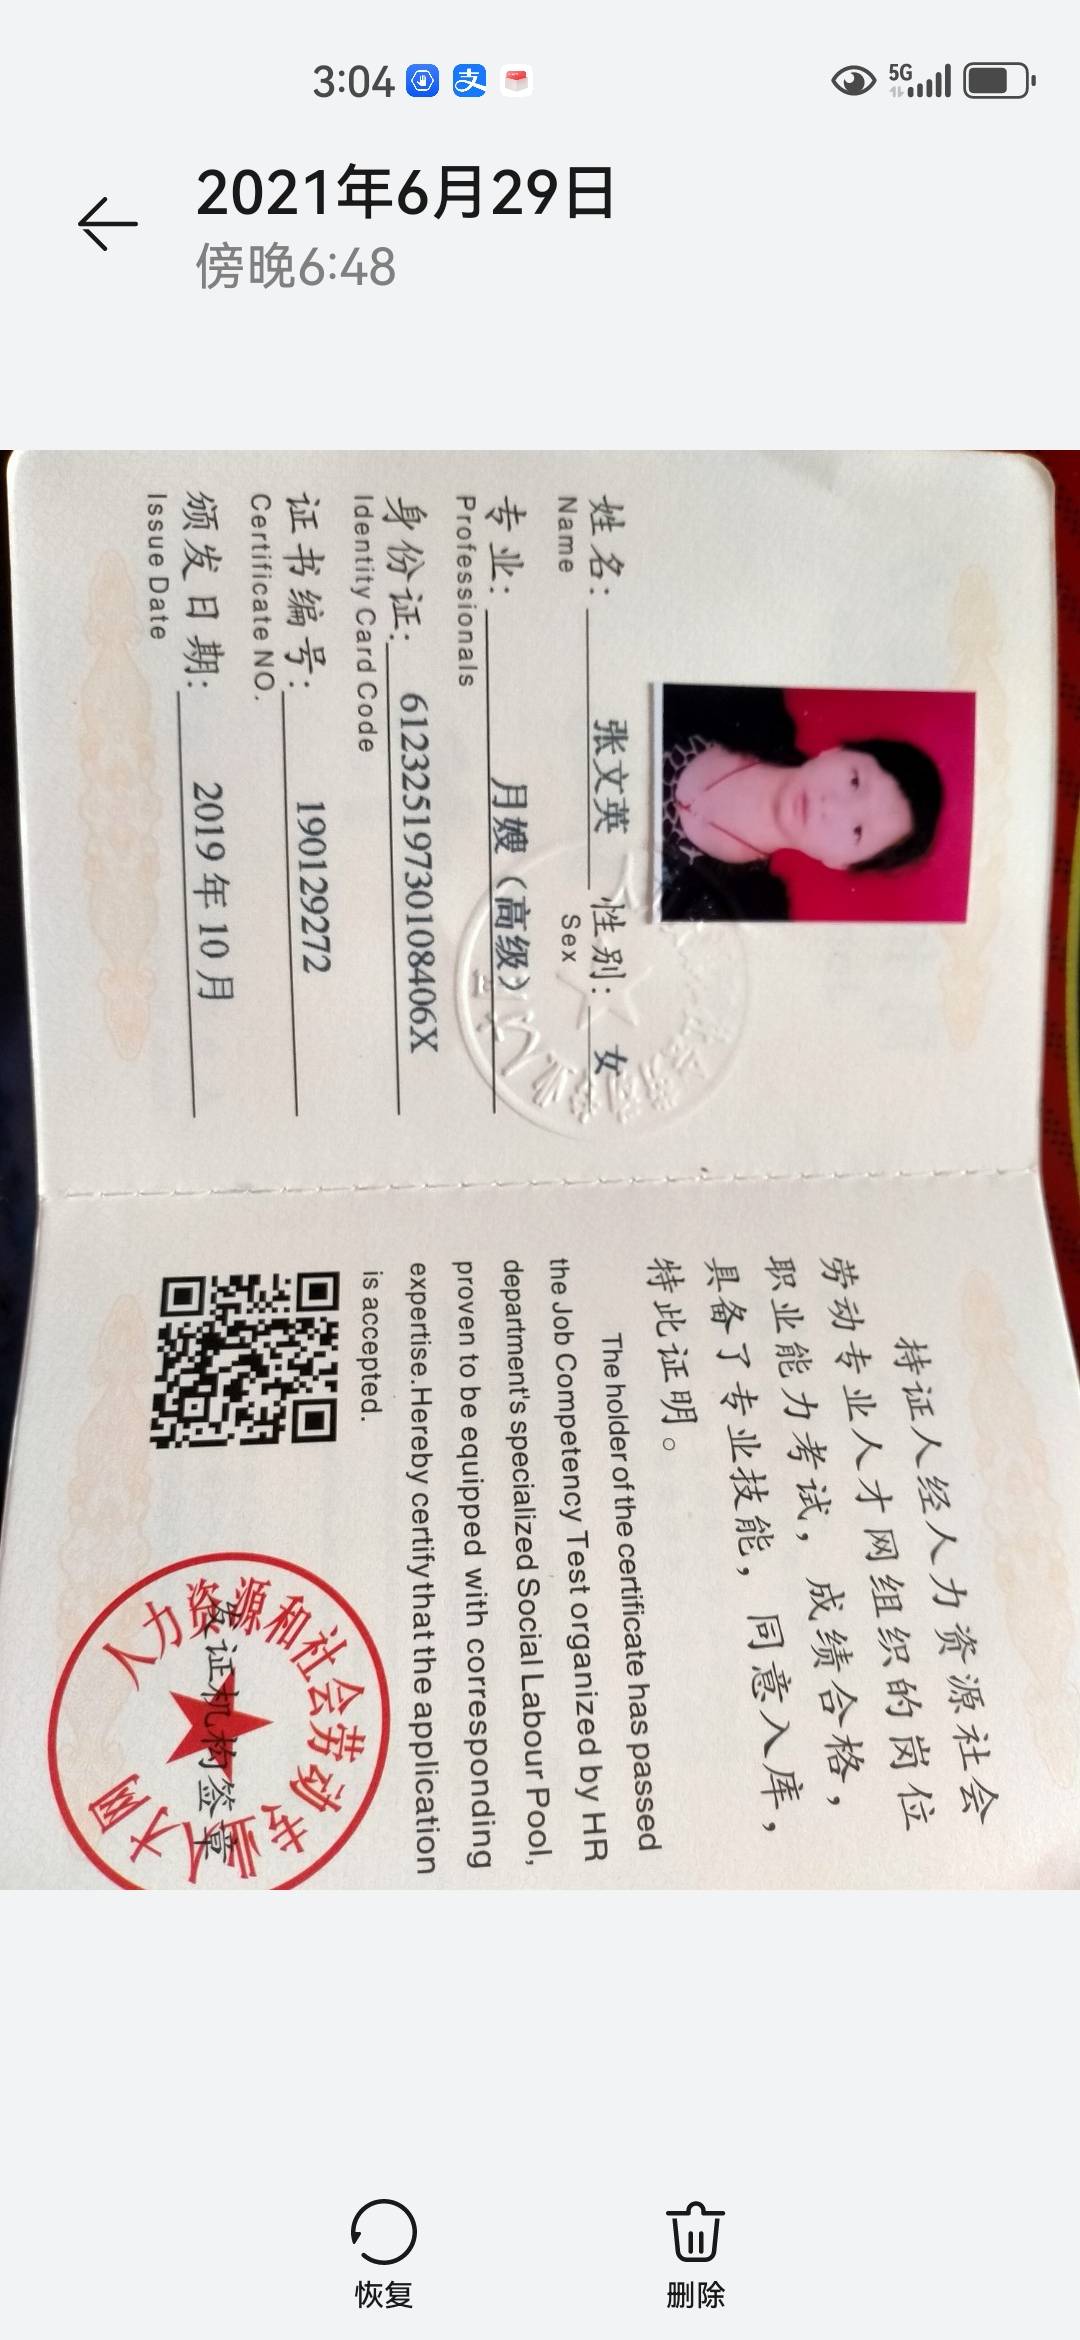 3:04
5G
2021年6月29日
傍晚6:48
姓名： 张文英 性别： 女
Name Sex
专业： 月嫂（高级）
Professionals
身份证： 61232519730108406X
Identity Card Code
证书编号： 190129272
Certificate NO.
颁发日期： 2019年10月
Issue Date
持证人经人力资源社会
劳动专业人才网组织的岗位
职业能力考试，成绩合格，
具备了专业技能，同意入库，
特此证明。
The holder of the certificate has passed
the Job Competency Test organized by HR
department's specialized Social Labour Pool,
proven to be equipped with corresponding
expertise.Hereby certify that the application
is accepted.
人力资源和社会劳动专业人才网
发证机构签章
恢复
删除